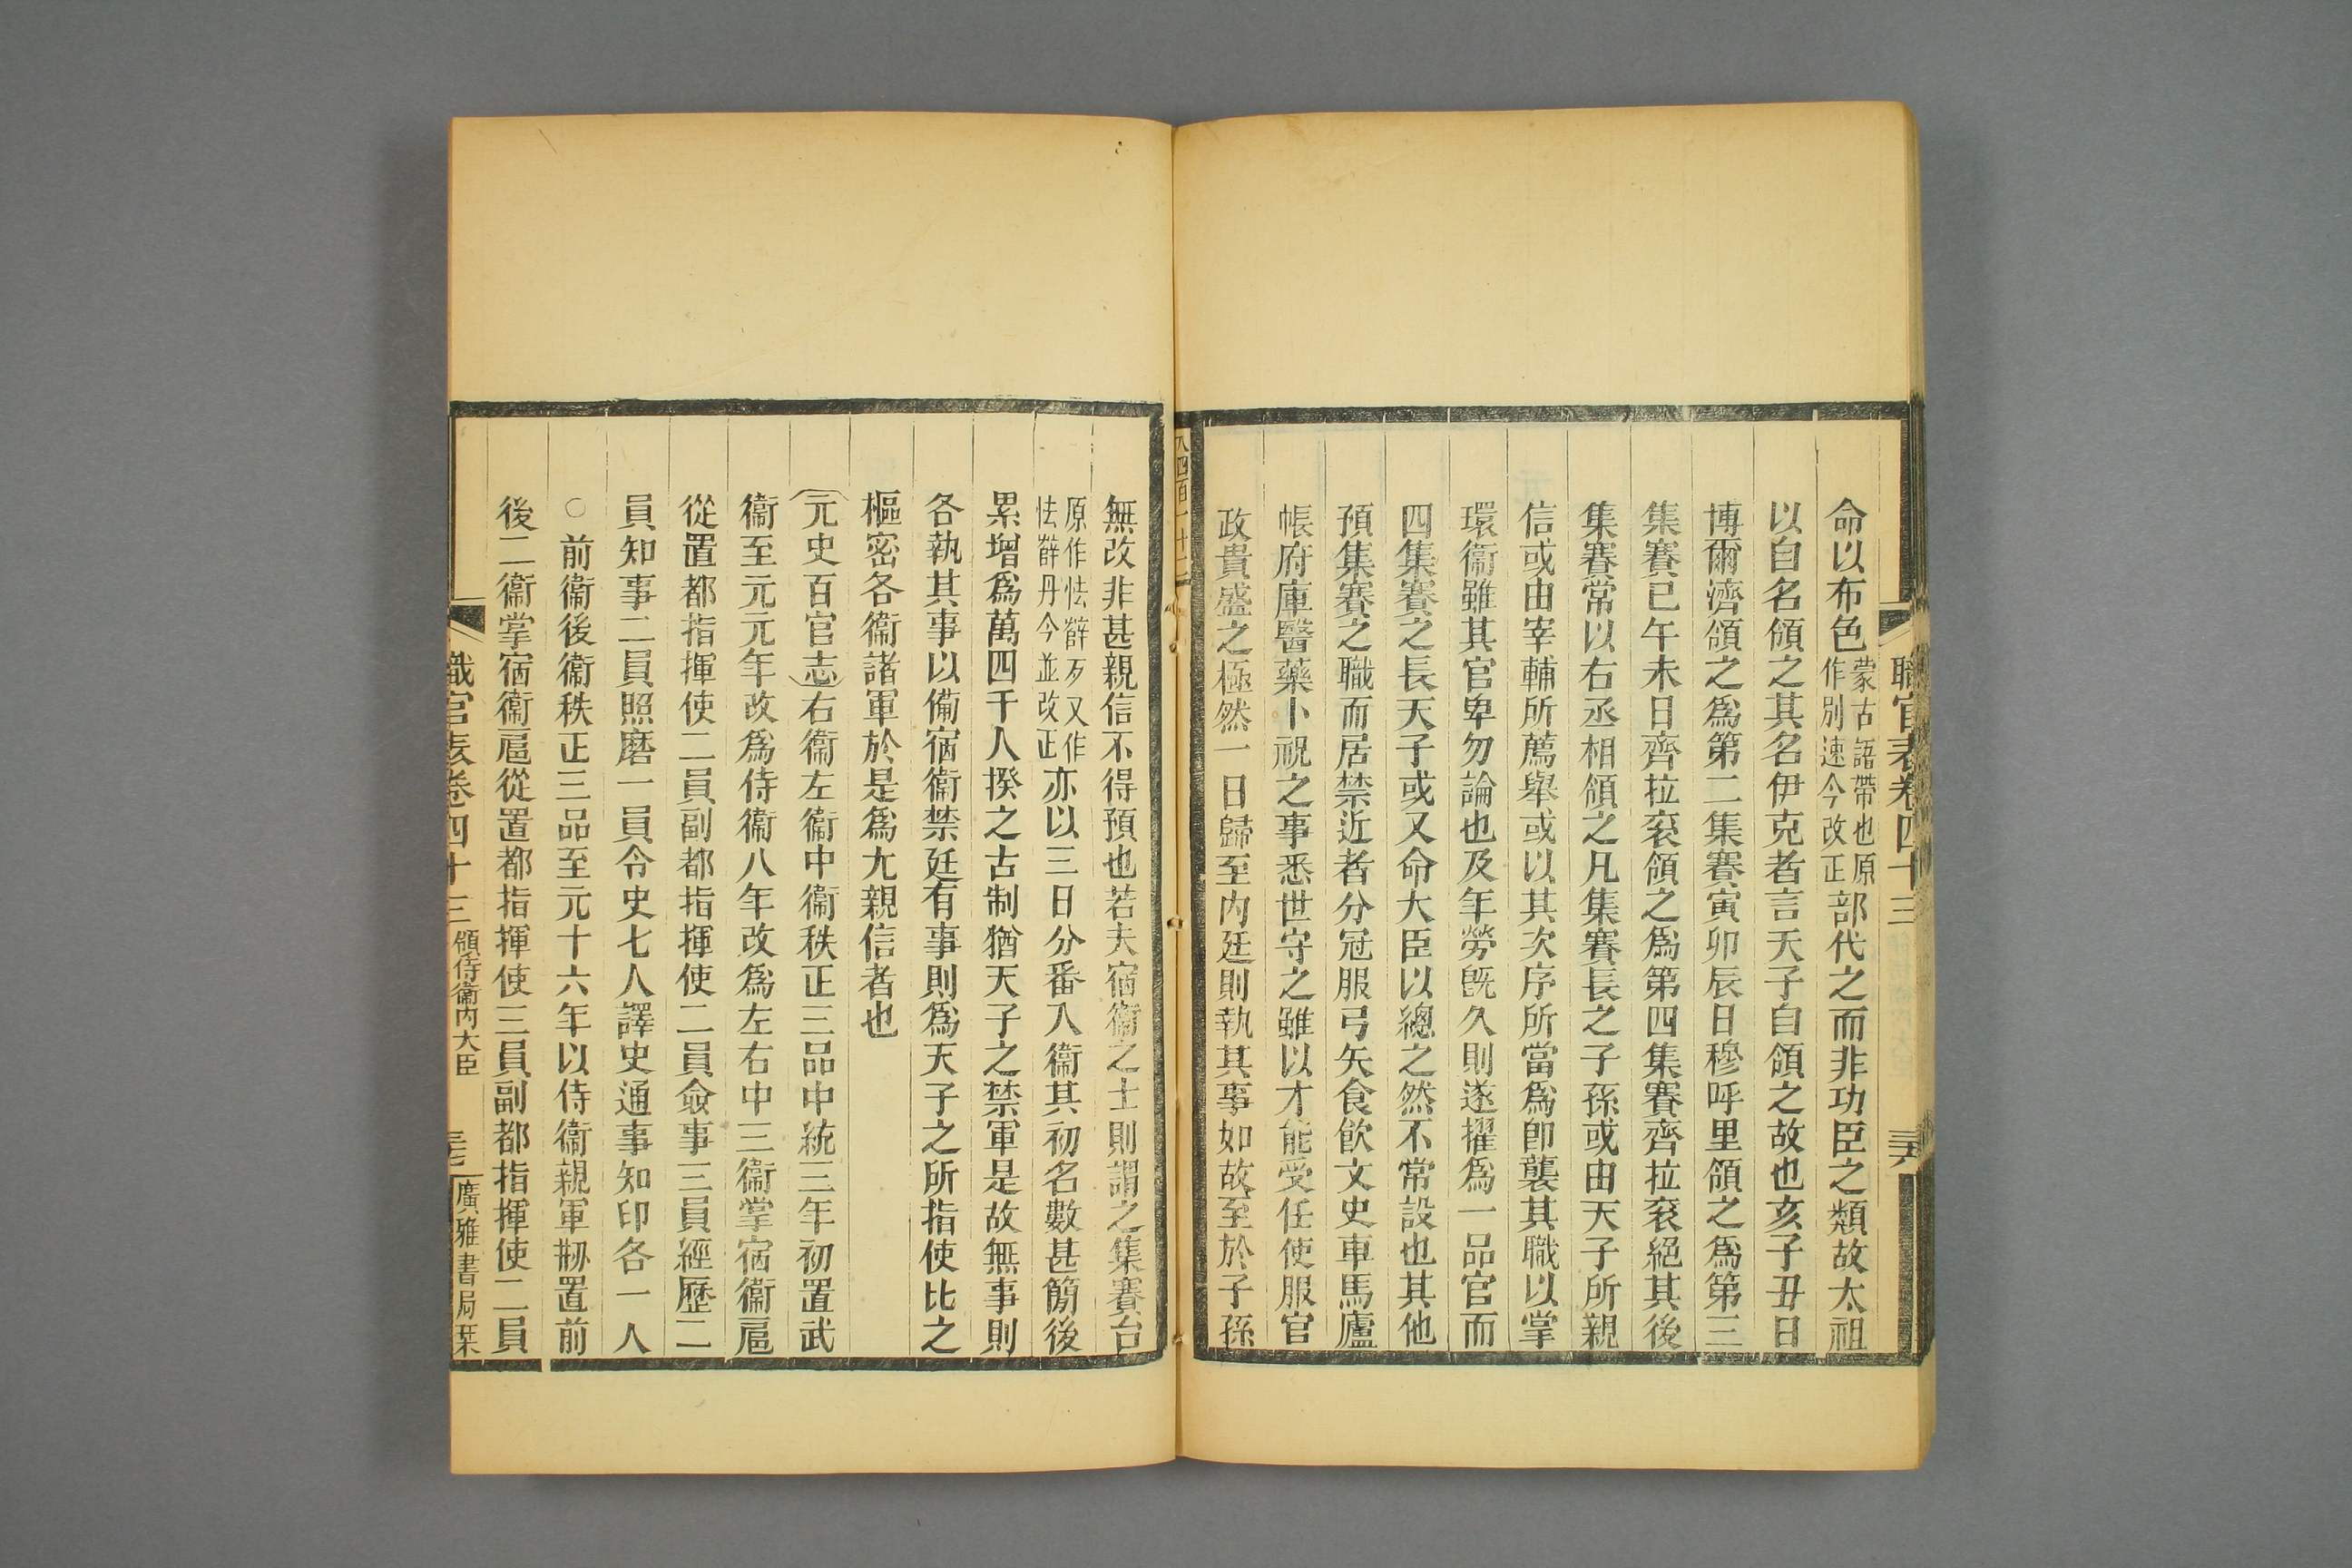 職官表卷四十三
三六
命以布色蒙古語帶也原作別速今改正部代之而非功臣之類故太祖
以自名領之其名伊克者言天子自領之故也亥子丑日
博爾濟領之爲第二集賽寅卯辰日穆呼里領之爲第三
集賽已午未日齊拉袞領之爲第四集賽齊拉袞絕其後
集賽常以右丞相領之凡集賽長之子孫或由天子所親
信或由宰輔所薦舉或以其次序所當爲卽襲其職以掌
環衞雖其官卑勿論也及年勞旣久則遂擢爲一品官而
四集賽之長天子或又命大臣以總之然不常設也其他
預集賽之職而居禁近者分冠服弓矢食飮文史車馬廬
帳府庫醫藥卜祝之事悉世守之雖以才能受任使服官
政貴盛之極然一日歸至內廷則執其事如故至於子孫
無改非甚親信不得預也若夫宿衞之士則謂之集賽台
原作怯薛歹又作怯薛丹今並改正亦以三日分番入衞其初名數甚簡後
累增爲萬四千人揆之古制猶天子之禁軍是故無事則
各執其事以備宿衞禁廷有事則爲天子之所指使比之
樞密各衞諸軍於是爲尤親信者也
（元史百官志）右衞左衞中衞秩正三品中統三年初置武
衞至元元年改爲侍衞八年改爲左右中三衞掌宿衞扈
從置都指揮使二員副都指揮使二員僉事三員經歷二
員知事二員照磨一員令史七人譯史通事知印各一人
○前衞後衞秩正三品至元十六年以侍衞親軍剏置前
後二衞掌宿衞扈從置都指揮使三員副都指揮使二員
職官表卷四十三 領侍衞內大臣
三七
廣雅書局栞